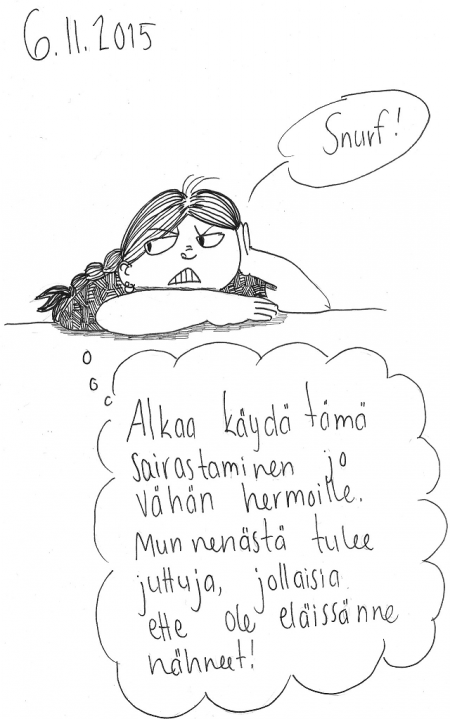 6.11.2015
Snurf!
Alkaa käydä tämä
sairastaminen jo
vähän hermoille.
Mun nenästä tulee
juttuja, jollaisia
ette ole eläissänne
nähneet!